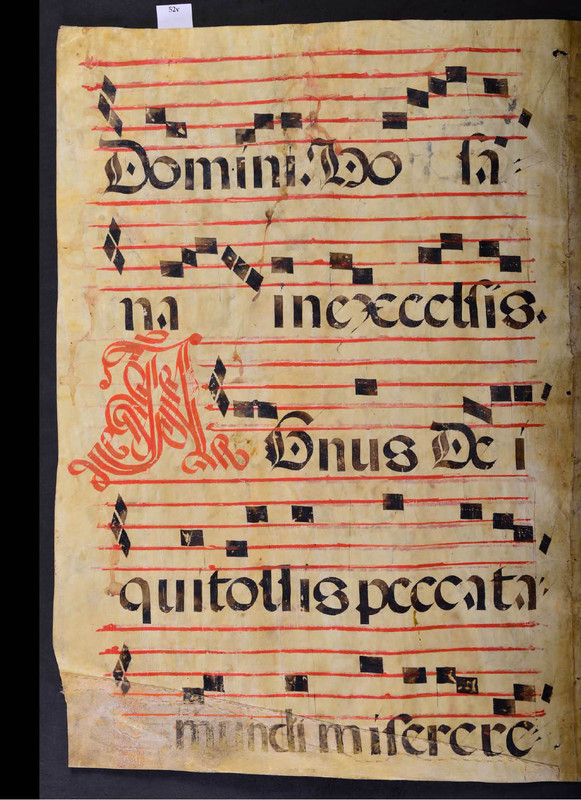 52v
Domini. Ho sa
na in excelsis.
Agnus Dei
qui tollis peccata
mundi miserere